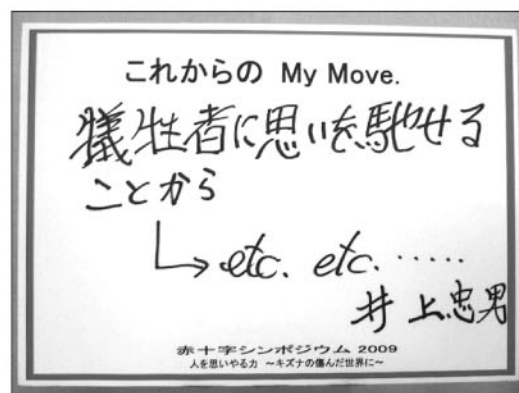 これからの My Move.
犠牲者に思いを馳せる
ことから
↳ etc. etc. ‥‥‥
井上忠男
赤十字シンポジウム 2009
人を思いやる力 ～キズナの傷んだ世界に～